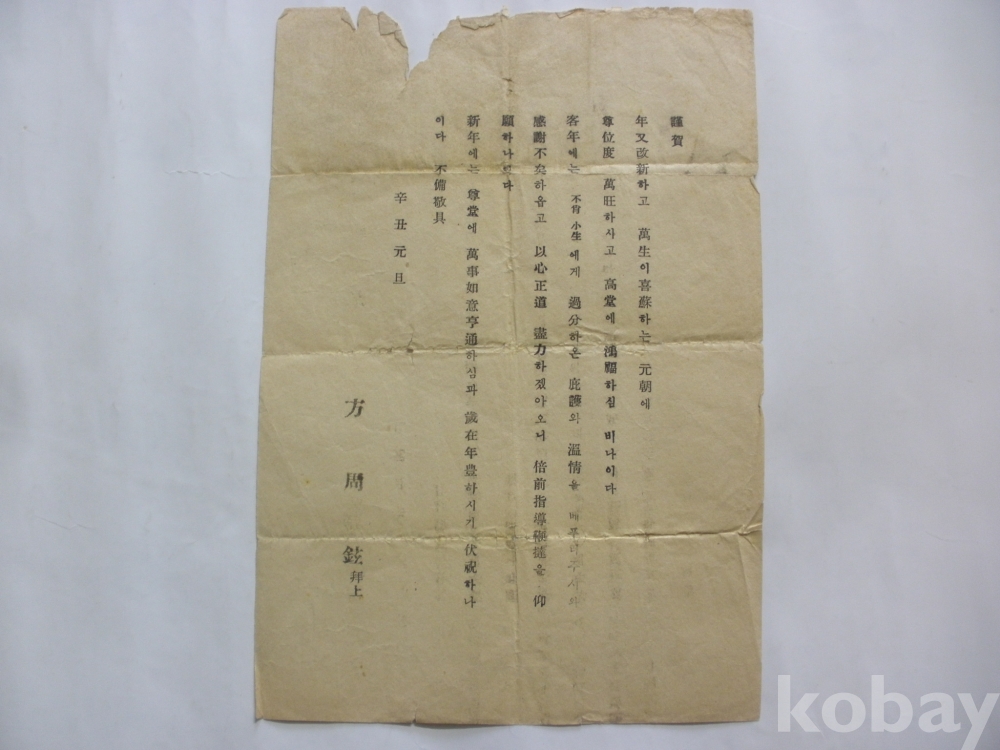 謹賀
年又改新하고 萬生이喜蘇하는 元朝에
尊位度 萬旺하사고 高堂에 鴻福하심 비나이다
客年에는 不肖 小生에게 過分하온 庇護와 溫情을 베푸러주시와
感謝不矣하옵고 以心正道 盡力하겠아오니 倍前指導鞭撻을 仰
願하나이다
新年에는 尊堂에 萬事如意亨通하심과 歲在年豊하시기 伏祝하나
이다 不備敬具
辛丑元旦
方周鉉 拜上
kobay